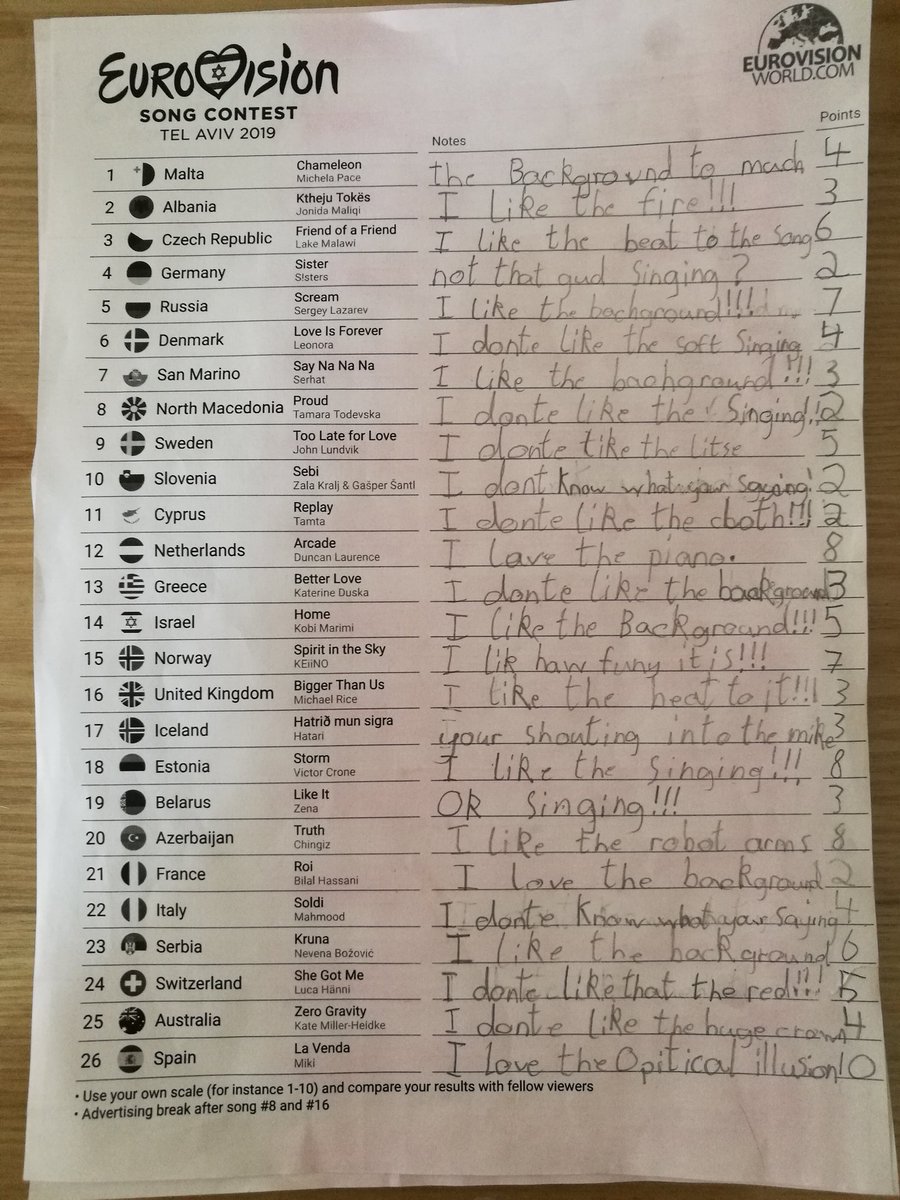 EUROVISION
SONG CONTEST
TEL AVIV 2019
EUROVISION
WORLD.COM
Notes Points
1 Malta Chameleon Michela Pace the Background to much 4
2 Albania Ktheju Tokës Jonida Maliqi I like the fire!!! 3
3 Czech Republic Friend of a Friend Lake Malawi I like the beat to the song 6
4 Germany Sister S!sters not that gud singing? 2
5 Russia Scream Sergey Lazarev I like the bachground!!! 7
6 Denmark Love Is Forever Leonora I donte like the soft Singing 4
7 San Marino Say Na Na Na Serhat I like the bachground!!! 3
8 North Macedonia Proud Tamara Todevska I donte like the Singing!! 2
9 Sweden Too Late for Love John Lundvik I donte like the litse 5
10 Slovenia Sebi Zala Kralj & Gašper Šantl I dont know what your saying! 2
11 Cyprus Replay Tamta I donte like the cloth!!! 2
12 Netherlands Arcade Duncan Laurence I love the piano. 8
13 Greece Better Love Katerine Duska I donte like the background 3
14 Israel Home Kobi Marimi I like the Background!!! 5
15 Norway Spirit in the Sky KEiiNO I lik haw funy it is!!! 7
16 United Kingdom Bigger Than Us Michael Rice I like the beat to it!!! 3
17 Iceland Hatrið mun sigra Hatari your shouting into the mike 3
18 Estonia Storm Victor Crone I like the singing!!! 8
19 Belarus Like It Zena OK singing!!! 3
20 Azerbaijan Truth Chingiz I like the robot arms 8
21 France Roi Bilal Hassani I love the background 2
22 Italy Soldi Mahmood I donte know what your saying 4
23 Serbia Kruna Nevena Božović I like the background 6
24 Switzerland She Got Me Luca Hänni I donte like that the red!!! 5
25 Australia Zero Gravity Kate Miller-Heidke I donte like the huge crown 4
26 Spain La Venda Miki I love the Opitical illusion! 0
• Use your own scale (for instance 1-10) and compare your results with fellow viewers
• Advertising break after song #8 and #16